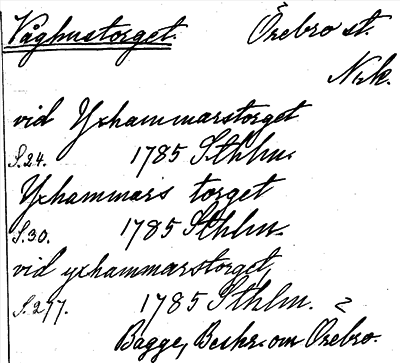 Våghustorget. Örebro st.
Nrk.
vid Yxhammarstorget
S.24. 1785 Sthlm.
Yxhammars torget
S.30. 1785 Sthlm.
vid yxhammarstorget,
S.277. 1785 Sthlm.
Bagge, Beskr. om Örebro.